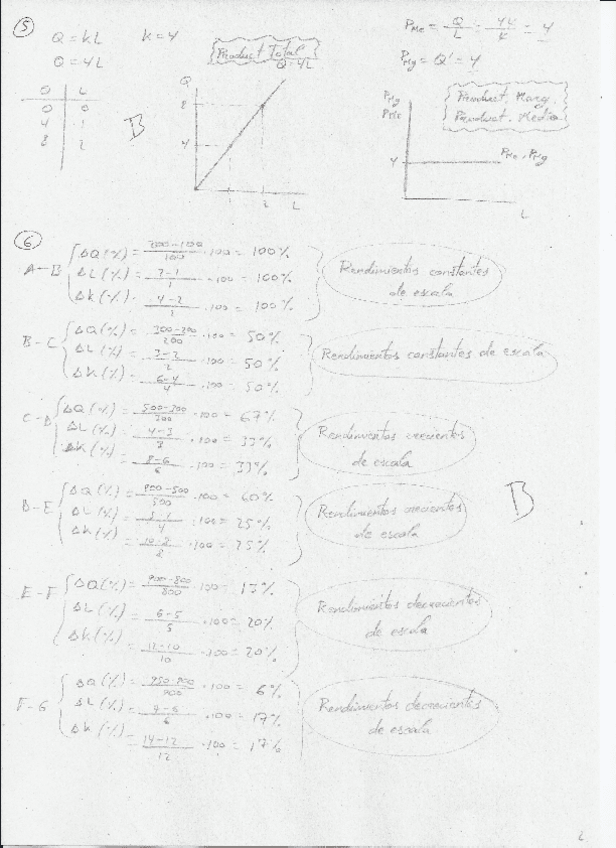 5
Q = kL   k = 4
Q = 4L
Q   L
0   0
4   1
8   2
B
Product Total
Q = 4L
Q
8
4
2   L
PMe = Q/L = 4L/L = 4
PMg = Q' = 4
Product. Marg.
Product. Media
PMg
PMe
4
PMe, PMg
L
6
A-B
ΔQ(%) = 200-100/100 · 100 = 100%
ΔL(%) = 2-1/1 · 100 = 100%
Δk(%) = 4-2/2 · 100 = 100%
Rendimientos constantes
de escala
B-C
ΔQ(%) = 300-200/200 · 100 = 50%
ΔL(%) = 3-2/2 · 100 = 50%
Δk(%) = 6-4/4 · 100 = 50%
Rendimientos constantes de escala
C-D
ΔQ(%) = 500-300/300 · 100 = 67%
ΔL(%) = 4-3/3 · 100 = 33%
Δk(%) = 8-6/6 · 100 = 33%
Rendimientos crecientes
de escala
D-E
ΔQ(%) = 800-500/500 · 100 = 60%
ΔL(%) = 5-4/4 · 100 = 25%
Δk(%) = 10-8/8 · 100 = 25%
Rendimientos crecientes
de escala
B
E-F
ΔQ(%) = 900-800/800 · 100 = 13%
ΔL(%) = 6-5/5 · 100 = 20%
Δk(%) = 12-10/10 · 100 = 20%
Rendimientos decrecientes
de escala
F-G
ΔQ(%) = 950-900/900 · 100 = 6%
ΔL(%) = 7-6/6 · 100 = 17%
Δk(%) = 14-12/12 · 100 = 17%
Rendimientos decrecientes
de escala
2